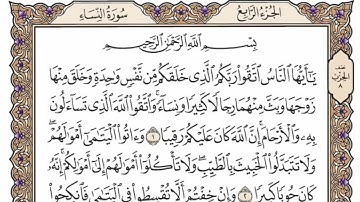 الجزء الرابع سورة النساء
بسم الله الرحمن الرحيم
يَٰٓأَيُّهَا ٱلنَّاسُ ٱتَّقُوا۟ رَبَّكُمُ ٱلَّذِى خَلَقَكُم مِّن نَّفْسٍ وَٰحِدَةٍ وَخَلَقَ مِنْهَا
زَوْجَهَا وَبَثَّ مِنْهُمَا رِجَالًا كَثِيرًا وَنِسَآءً ۚ وَٱتَّقُوا۟ ٱللَّهَ ٱلَّذِى تَسَآءَلُونَ
بِهِۦ وَٱلْأَرْحَامَ ۚ إِنَّ ٱللَّهَ كَانَ عَلَيْكُمْ رَقِيبًا ١ وَءَاتُوا۟ ٱلْيَتَٰمَىٰٓ أَمْوَٰلَهُمْ ۖ
وَلَا تَتَبَدَّلُوا۟ ٱلْخَبِيثَ بِٱلطَّيِّبِ ۖ وَلَا تَأْكُلُوٓا۟ أَمْوَٰلَهُمْ إِلَىٰٓ أَمْوَٰلِكُمْ ۚ إِنَّهُۥ
كَانَ حُوبًا كَبِيرًا ٢ وَإِنْ خِفْتُمْ أَلَّا تُقْسِطُوا۟ فِى ٱلْيَتَٰمَىٰ فَٱنكِحُوا۟